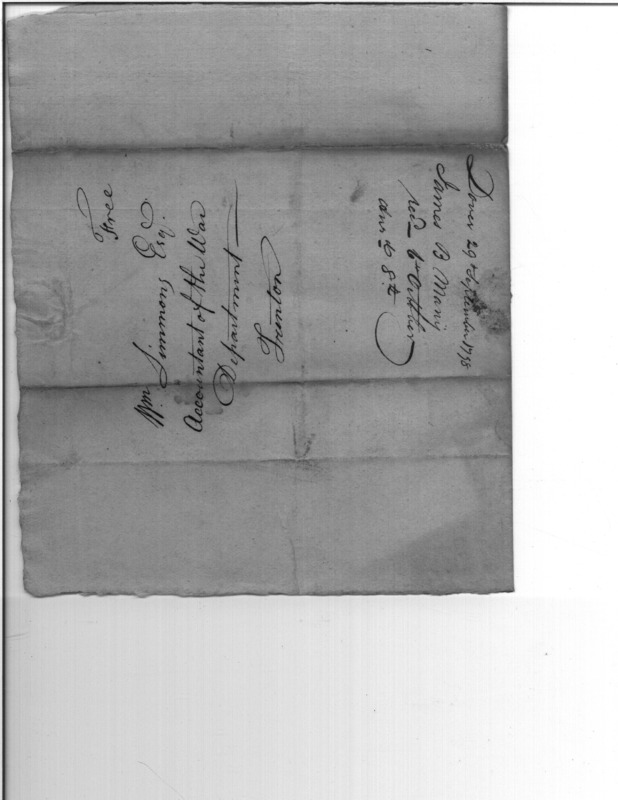 Dover 29 September 1798
James B Many
red 6 October
Ans to 8th
Free
Wm Simmons Esq.
Accountant of the War
Department
Trenton